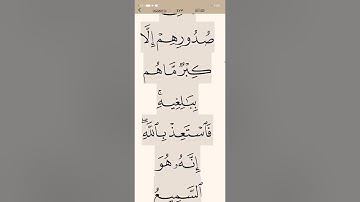 صُدُورِهِمْ إِلَّا
كِبْرٌ مَّا هُم
بِبَٰلِغِيهِ ۚ
فَٱسْتَعِذْ بِٱللَّهِ ۖ
إِنَّهُۥ هُوَ
ٱلسَّمِيعُ